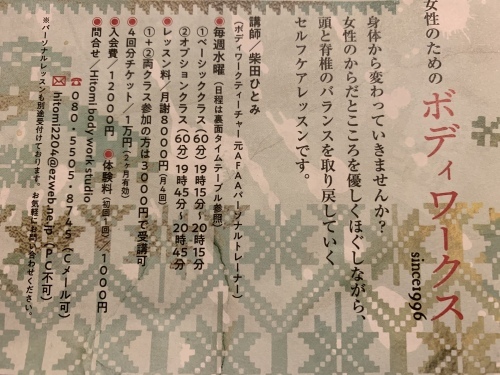 女性のための ボディワークス
since1996
身体から変わっていきませんか？
女性のからだとこころを優しくほぐしながら、
頭と脊椎のバランスを取り戻していく
セルフケアレッスンです。
講師／柴田ひとみ
（ボディワークティーチャー 元AFAAパーソナルトレーナー）
●毎週水曜（日程は裏面タイムテーブル参照）
①ベーシッククラス（60分）19時15分〜20時15分
②オプションクラス（60分）19時45分〜20時45分
●レッスン料／月謝8000円（月4回）
①＋②両クラス参加の方は3000円で受講可
●4回分チケット／1万円（2ヶ月有効）
●入会費／1200円 ●体験料（初回1回）／1000円
●問合せ／Hitomi body work studio
☎080・5505・8745（Cメール可）
✉hitomi2204@ezweb.ne.jp（PC不可）
※パーソナルレッスンも別途受付けております。お気軽にお問い合わせください。